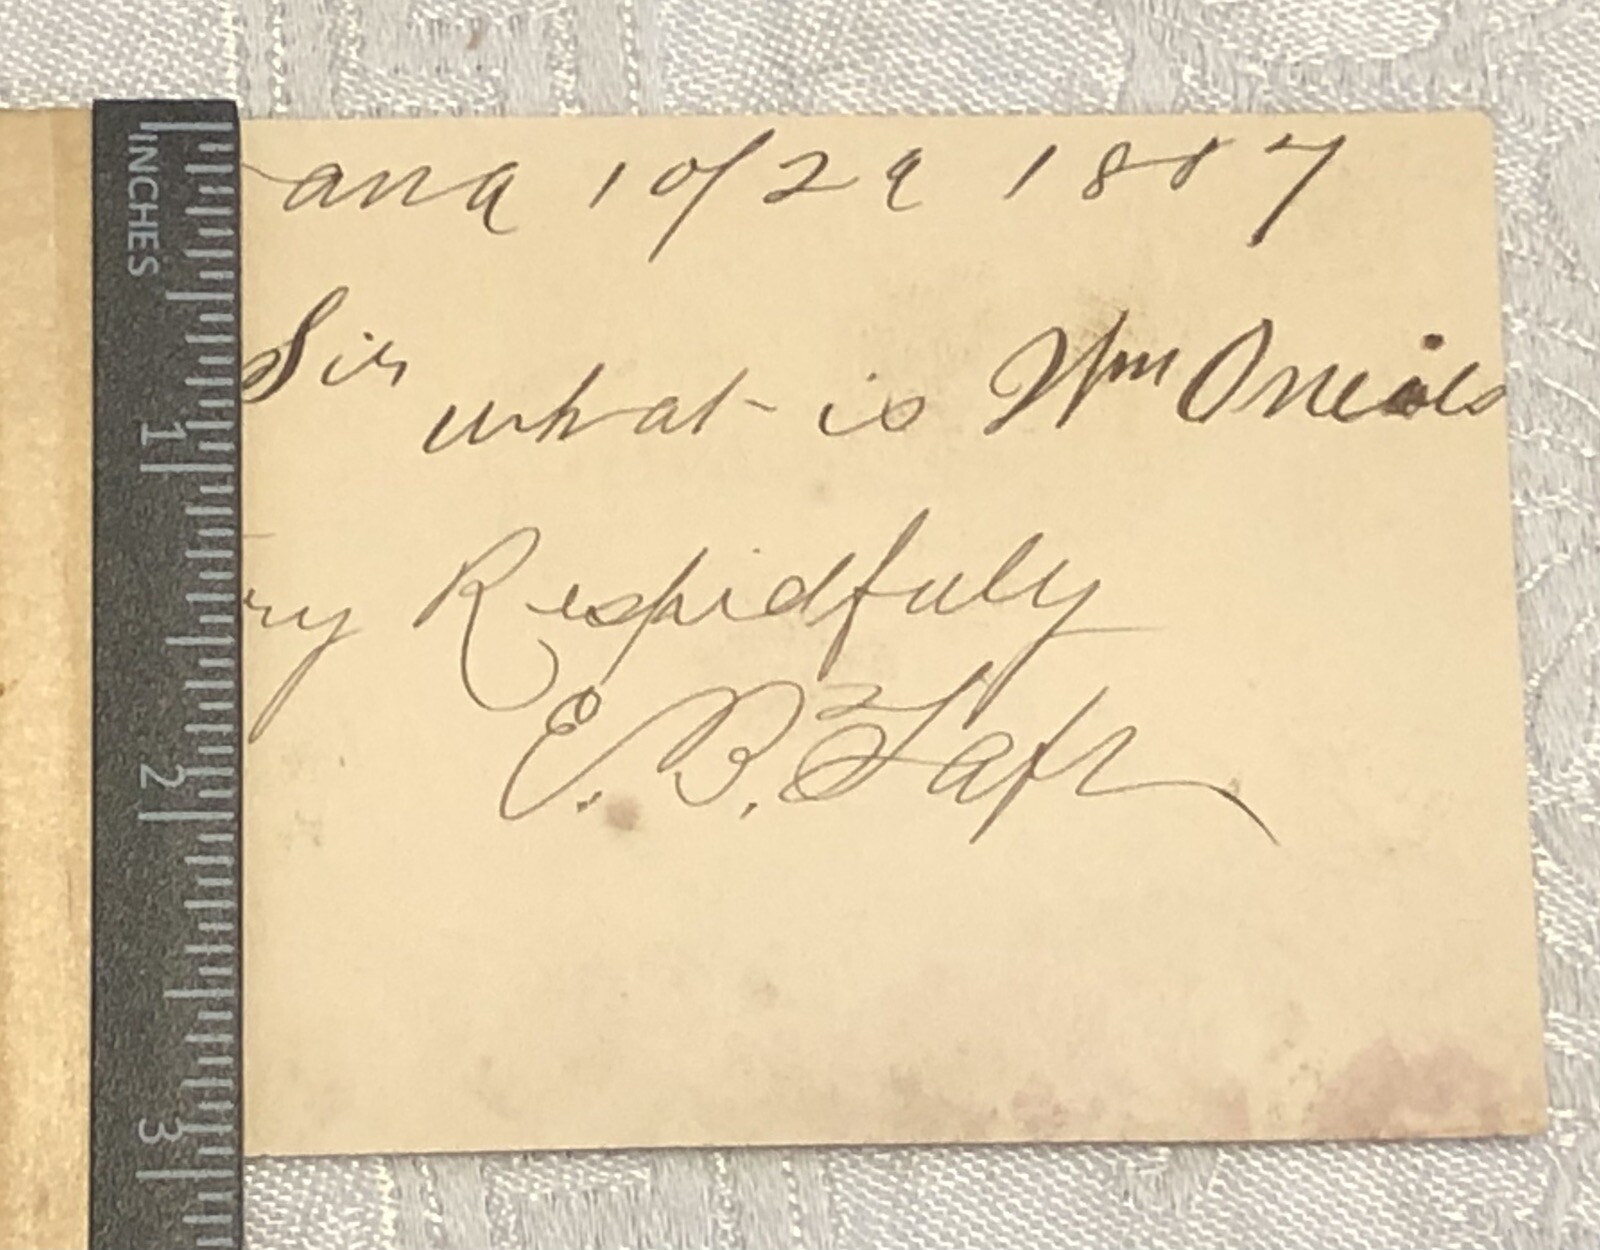 INCHES
1
2
3
ana 10/29 1887
Sir
what is Wm Oneals
ry Respidfuly
E. B. Taft